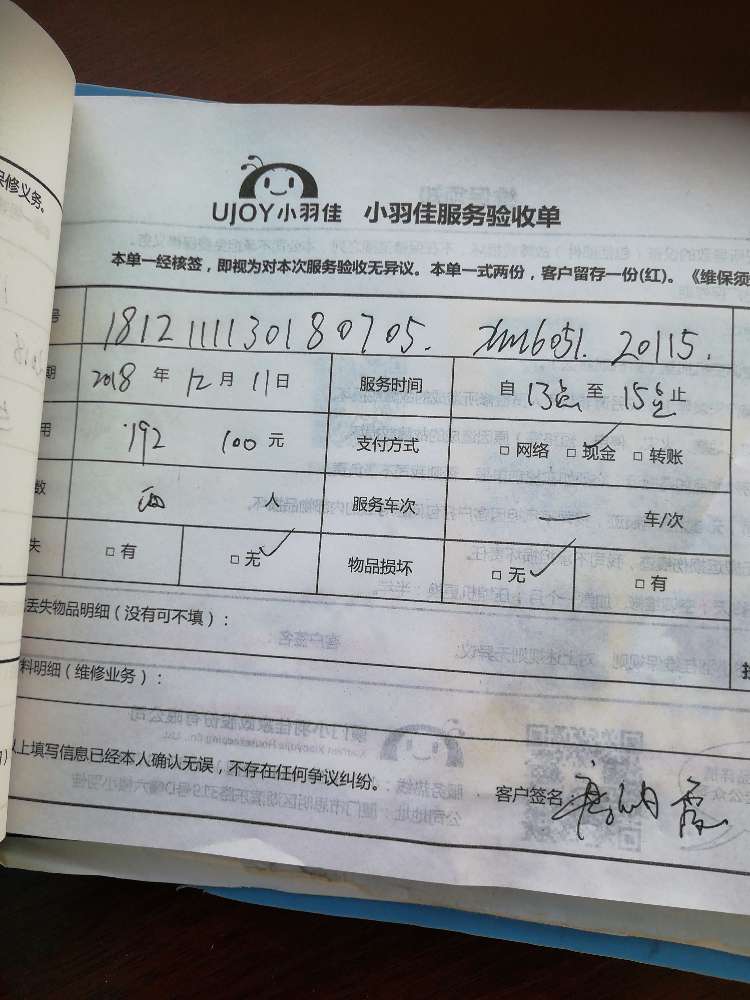 保修义务。
UJOY小羽佳 小羽佳服务验收单
本单一经核签，即视为对本次服务验收无异议。本单一式两份，客户留存一份(红)。《维保须
号 18121111130180705. xm6051. 20115.
期 2018 年 12 月 11 日 服务时间 自 13点 至 15点 止
用 192 100 元 支付方式 □ 网络 □ 现金 ✓ □ 转账
数 两 人 服务车次 — 车/次
失 □ 有 □ 无 ✓ 物品损坏 □ 无 ✓ □ 有
丢失物品明细（没有可不填）：
料明细（维修业务）：
以上填写信息已经本人确认无误，不存在任何争议纠纷。 客户签名：